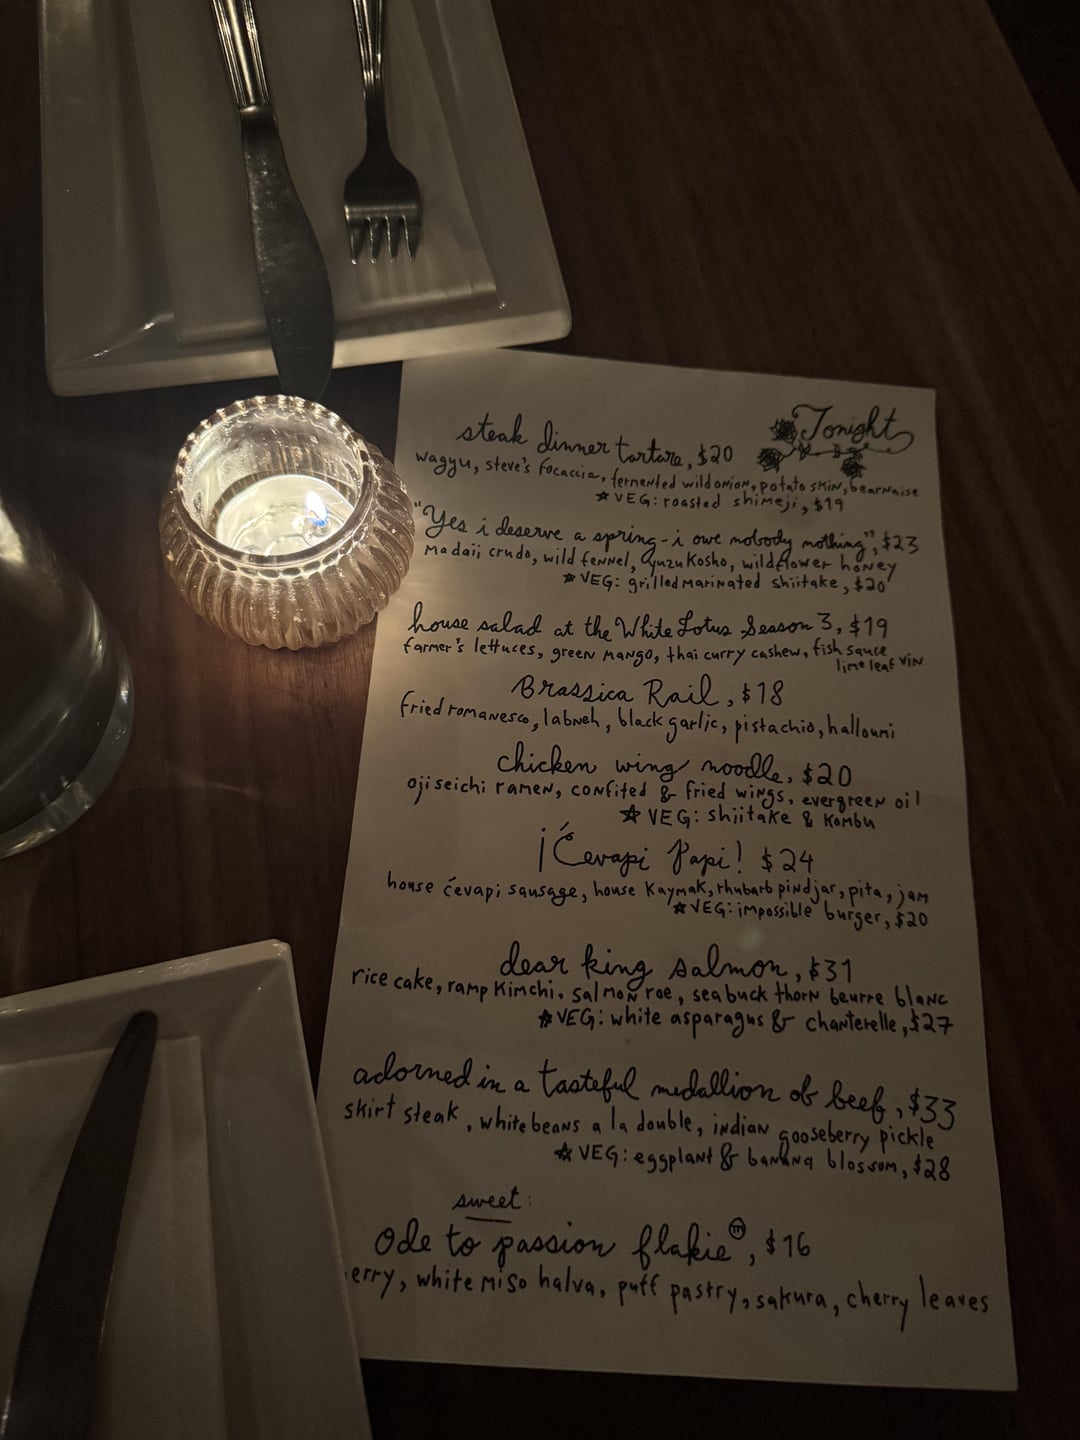 Tonight
steak dinner tartare, $20
wagyu, steve's focaccia, fermented wild onion, potato skin, bearnaise
☆ VEG: roasted shimeji, $19
"Yes i deserve a spring - i owe nobody nothing", $23
madaii crudo, wild fennel, yuzu kosho, wildflower honey
☆ VEG: grilled marinated shiitake, $20
house salad at the White Lotus Season 3, $19
farmer's lettuces, green mango, thai curry cashew, fish sauce
lime leaf vin
Brassica Rail, $18
fried romanesco, labneh, black garlic, pistachio, halloumi
chicken wing noodle, $20
oji seichi ramen, confited & fried wings, evergreen oil
☆ VEG: shiitake & kombu
¡Ćevapi Papi! $24
house ćevapi sausage, house kaymak, rhubarb pindjar, pita, jam
☆ VEG: impossible burger, $20
dear king salmon, $31
rice cake, ramp kimchi, salmon roe, seabuck thorn beurre blanc
☆ VEG: white asparagus & chanterelle, $27
adorned in a tasteful medallion of beef, $33
skirt steak, white beans a la double, indian gooseberry pickle
☆ VEG: eggplant & banana blossom, $28
sweet:
Ode to passion flakie™, $16
erry, white miso halva, puff pastry, sakura, cherry leaves